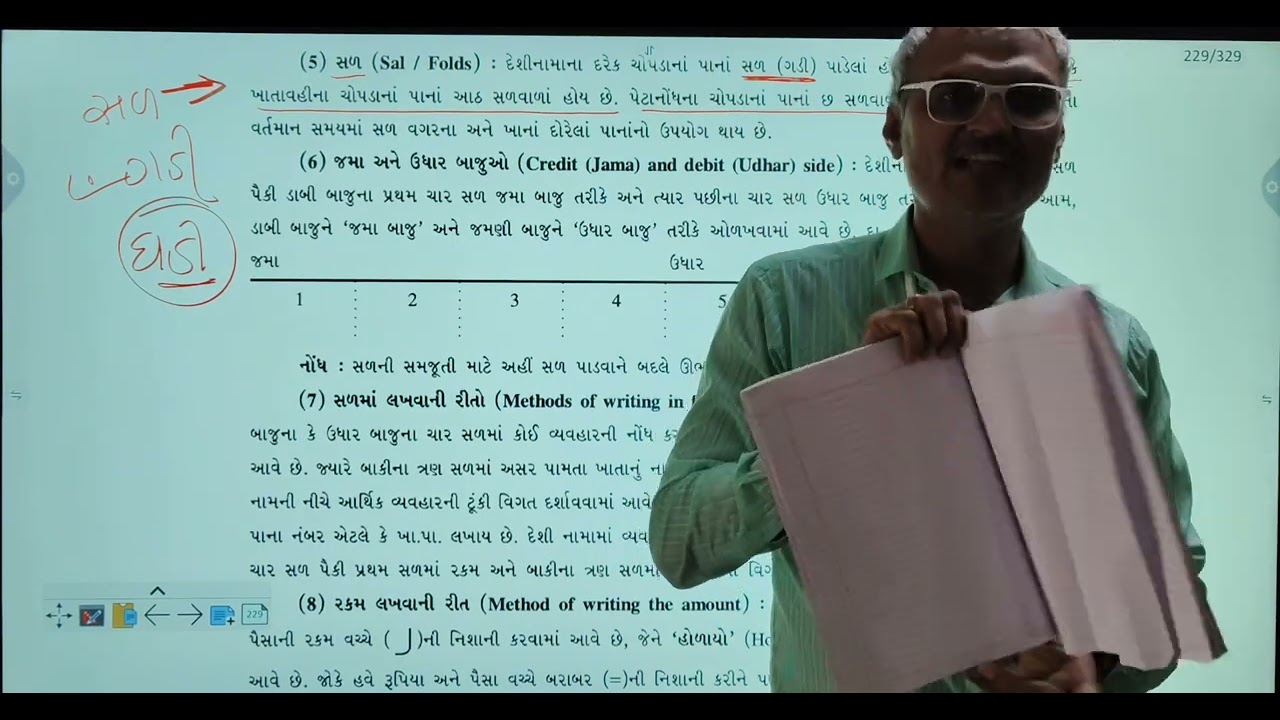 229/329
(5) સળ (Sal / Folds) : દેશીનામાના દરેક ચોપડાનાં પાનાં સળ (ગડી) પાડેલાં
ખાતાવહીના ચોપડાનાં પાનાં આઠ સળવાળાં હોય છે. પેટાનોંધના ચોપડાનાં પાનાં છ
વર્તમાન સમયમાં સળ વગરના અને ખાનાં દોરેલાં પાનાંનો ઉપયોગ થાય છે.
સળ
ગડી
ઘડી
(6) જમા અને ઉધાર બાજુઓ (Credit (Jama) and debit (Udhar) side) : સળ
પૈકી ડાબી બાજુના પ્રથમ ચાર સળ જમા બાજુ તરીકે અને ત્યાર પછીના ચાર સળ ઉધાર બાજુ આમ,
ડાબી બાજુને ‘જમા બાજુ’ અને જમણી બાજુને ‘ઉધાર બાજુ’ તરીકે ઓળખવામાં આવે છે.
જમા ઉધાર
1 2 3 4 5
નોંધ : સળની સમજૂતી માટે અહીં સળ પાડવાને બદલે
(7) સળમાં લખવાની રીતો (Methods of writing in
બાજુના કે ઉધાર બાજુના ચાર સળમાં કોઈ વ્યવહારની નોંધ
આવે છે. જ્યારે બાકીના ત્રણ સળમાં અસર પામતા ખાતાનું
નામની નીચે આર્થિક વ્યવહારની ટૂંકી વિગત દર્શાવવામાં
પાના નંબર એટલે કે ખા.પા. લખાય છે. દેશી નામામાં
ચાર સળ પૈકી પ્રથમ સળમાં રકમ અને બાકીના ત્રણ સળમાં
(8) રકમ લખવાની રીત (Method of writing the amount) :
પૈસાની રકમ વચ્ચે ( )ની નિશાની કરવામાં આવે છે, જેને ‘હોળાયો’
આવે છે. જોકે હવે રૂપિયા અને પૈસા વચ્ચે બરાબર (=)ની નિશાની કરીને
229